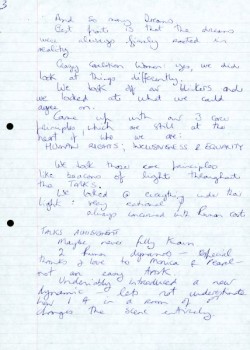 3
And so many Dreams
Best part is that the dreams
were always firmly rooted in
reality
Crazy Coalition Women: yes, we did
look at things differently.
We took off our blinkers and
we looked at what we could
agree on.
Came up with our 3 core
principles which are still at the
heart of who we are:
HUMAN RIGHTS; INCLUSIVENESS & EQUALITY
We took those core principles
like beacons of light throughout
the TALKS.
We looked @ everything under the
light: very rational
always concerned with human cost
TALKS
Maybe never fully know
2 Human dynamics - special
thanks & love to Monica & Pearl -
not an easy task
Undeniably introduced a new
dynamic - lets not underestimate
how 1 ♀ in a room of
changes the scene entirely.